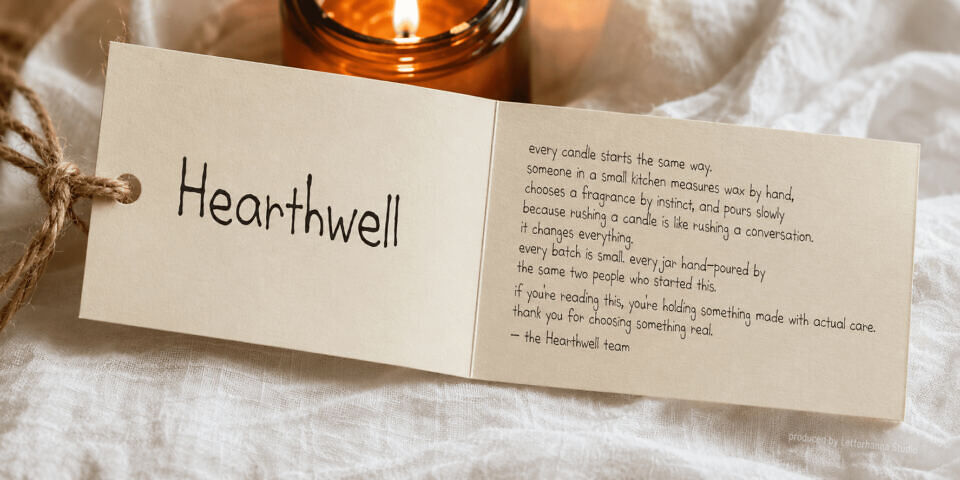 Hearthwell
every candle starts the same way.
someone in a small kitchen measures wax by hand,
chooses a fragrance by instinct, and pours slowly
because rushing a candle is like rushing a conversation.
it changes everything.
every batch is small. every jar hand-poured by
the same two people who started this.
if you're reading this, you're holding something made with actual care.
thank you for choosing something real.
— the Hearthwell team
produced by Letterhanna Studio